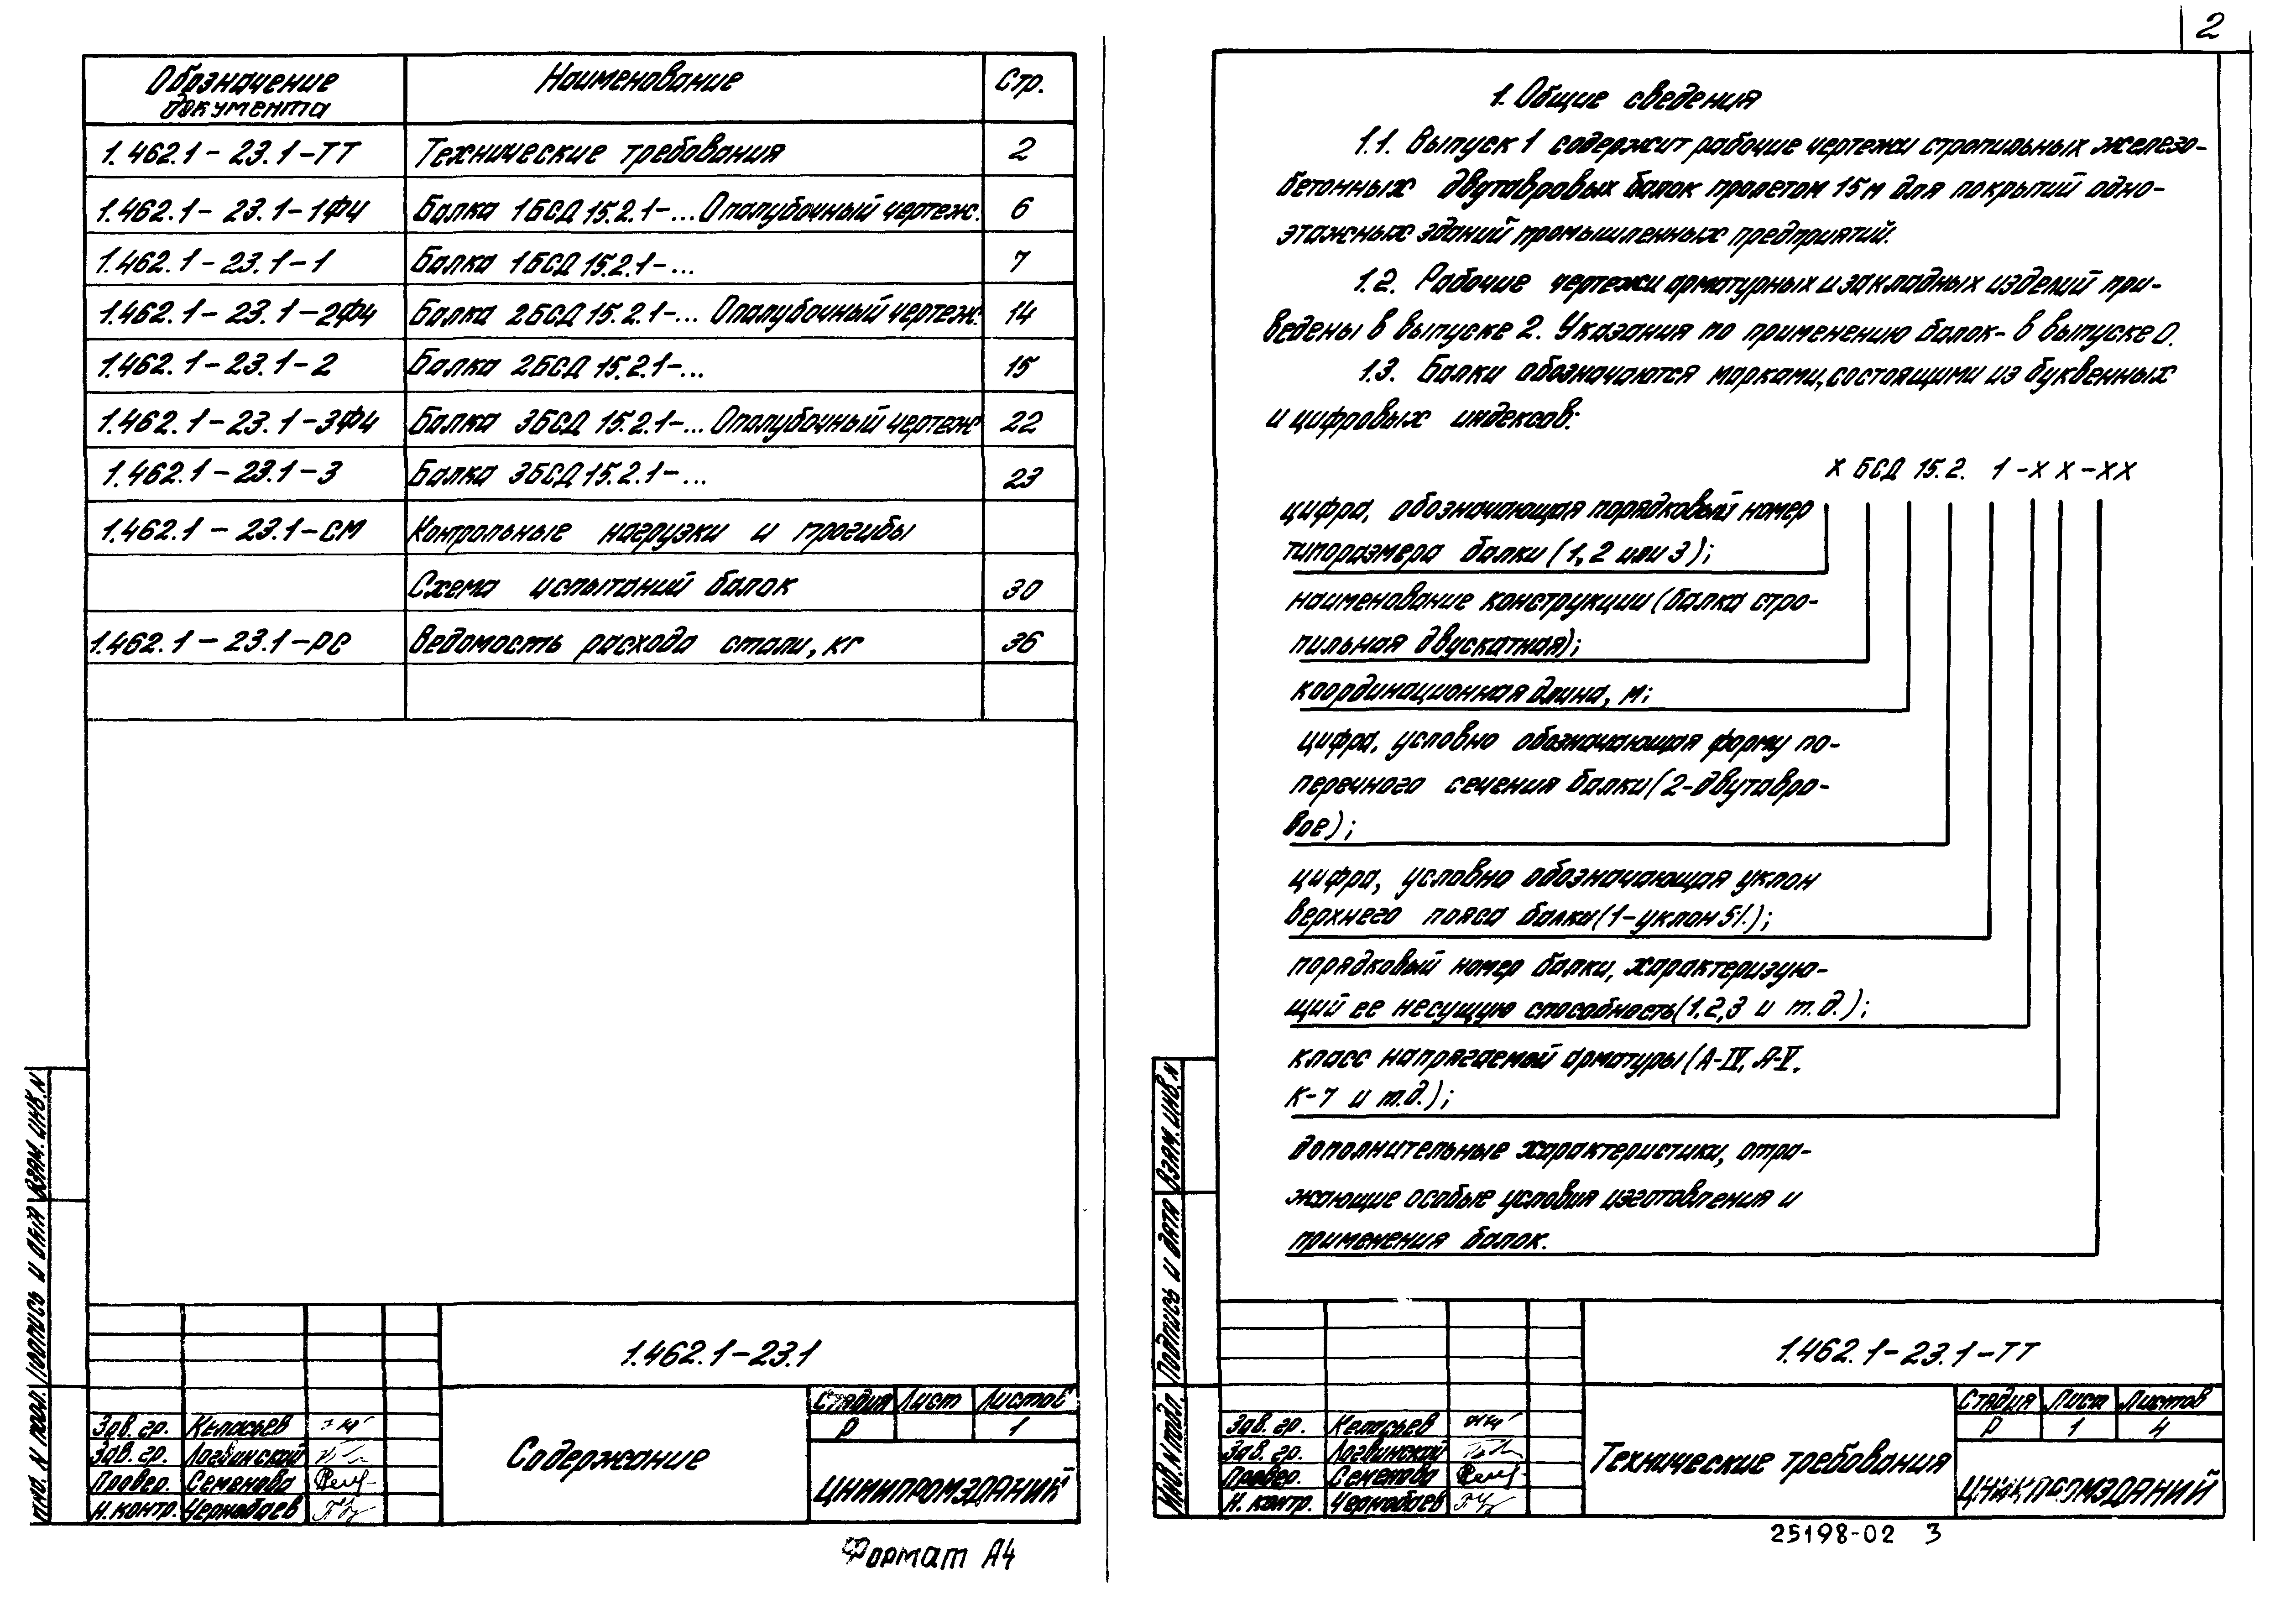 Обозначение документа Наименование Стр.
1.462.1-23.1-ТТ Технические требования 2
1.462.1-23.1-1ФЧ Балка 1БСД 15.2.1-... Опалубочный чертеж. 6
1.462.1-23.1-1 Балка 1БСД 15.2.1-... 7
1.462.1-23.1-2ФЧ Балка 2БСД 15.2.1-... Опалубочный чертеж. 14
1.462.1-23.1-2 Балка 2БСД 15.2.1-... 15
1.462.1-23.1-3ФЧ Балка 3БСД 15.2.1-... Опалубочный чертеж 22
1.462.1-23.1-3 Балка 3БСД 15.2.1-... 23
1.462.1-23.1-СМ Контрольные нагрузки и прогибы
Схема испытаний балок 30
1.462.1-23.1-РС Ведомость расхода стали, кг 36
1.462.1-23.1
Стадия Лист Листов
Р 1
Содержание
ЦНИИПРОМЗДАНИЙ
Зав. гр. Келасьев
Зав. гр. Логвинский
Провер. Семенова
Н. контр. Чернобаев
Инв. N подл. Подпись и дата Взам. инв. N
Формат А4
2
1. Общие сведения
1.1. Выпуск 1 содержит рабочие чертежи стропильных железо-
бетонных двутавровых балок пролетом 15м для покрытий одно-
этажных зданий промышленных предприятий.
1.2. Рабочие чертежи арматурных и закладных изделий при-
ведены в выпуске 2. Указания по применению балок - в выпуске 0.
1.3. Балки обозначаются марками, состоящими из буквенных
и цифровых индексов:
Х БСД 15.2. 1 -Х Х -ХХ
цифра, обозначающая порядковый номер
типоразмера балки (1, 2 или 3);
наименование конструкции (балка стро-
пильная двускатная);
координационная длина, м;
цифра, условно обозначающая форму по-
перечного сечения балки (2-двутавро-
вое);
цифра, условно обозначающая уклон
верхнего пояса балки (1-уклон 5%);
порядковый номер балки, характеризую-
щий ее несущую способность (1,2,3 и т.д.);
класс напрягаемой арматуры (А-IV, А-V,
К-7 и т.д.);
дополнительные характеристики, отра-
жающие особые условия изготовления и
применения балок.
1.462.1-23.1-ТТ
Стадия Лист Листов
Р 1 4
Технические требования
ЦНИИПРОМЗДАНИЙ
Зав. гр. Келасьев
Зав. гр. Логвинский
Провер. Семенова
Н. контр. Чернобаев
Инв. N подл. Подпись и дата Взам. инв. N
25198-02 3